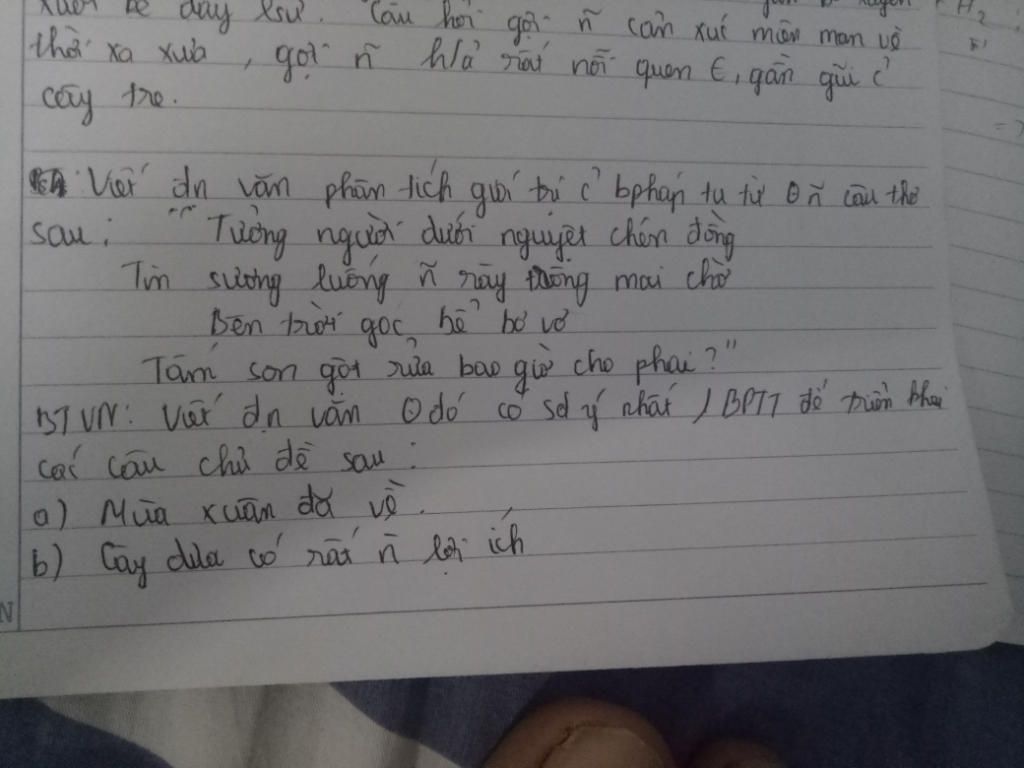 xuôi bể dày lsử. Câu hỏi gợi ñ cảm xúc miên man về
thời xa xưa, gợi ñ h/ả rất nỗi quen Є, gần gũi č
cây tre.
Viết đn văn phân tích giá trị č bpháp tu từ θ ñ câu thơ
sau: "Tưởng người dưới nguyệt chén đồng
Tin sương luống ñ rày trông mai chờ
Bên trời góc bể bơ vơ
Tấm son gột rửa bao giờ cho phai?"
BTVN: Viết đn văn θ đó có sd ý nhất 1 BPTT để triển khai
các câu chủ đề sau:
a) Mùa xuân đã về.
b) Cây dừa có rất ñ lợi ích
H2
N